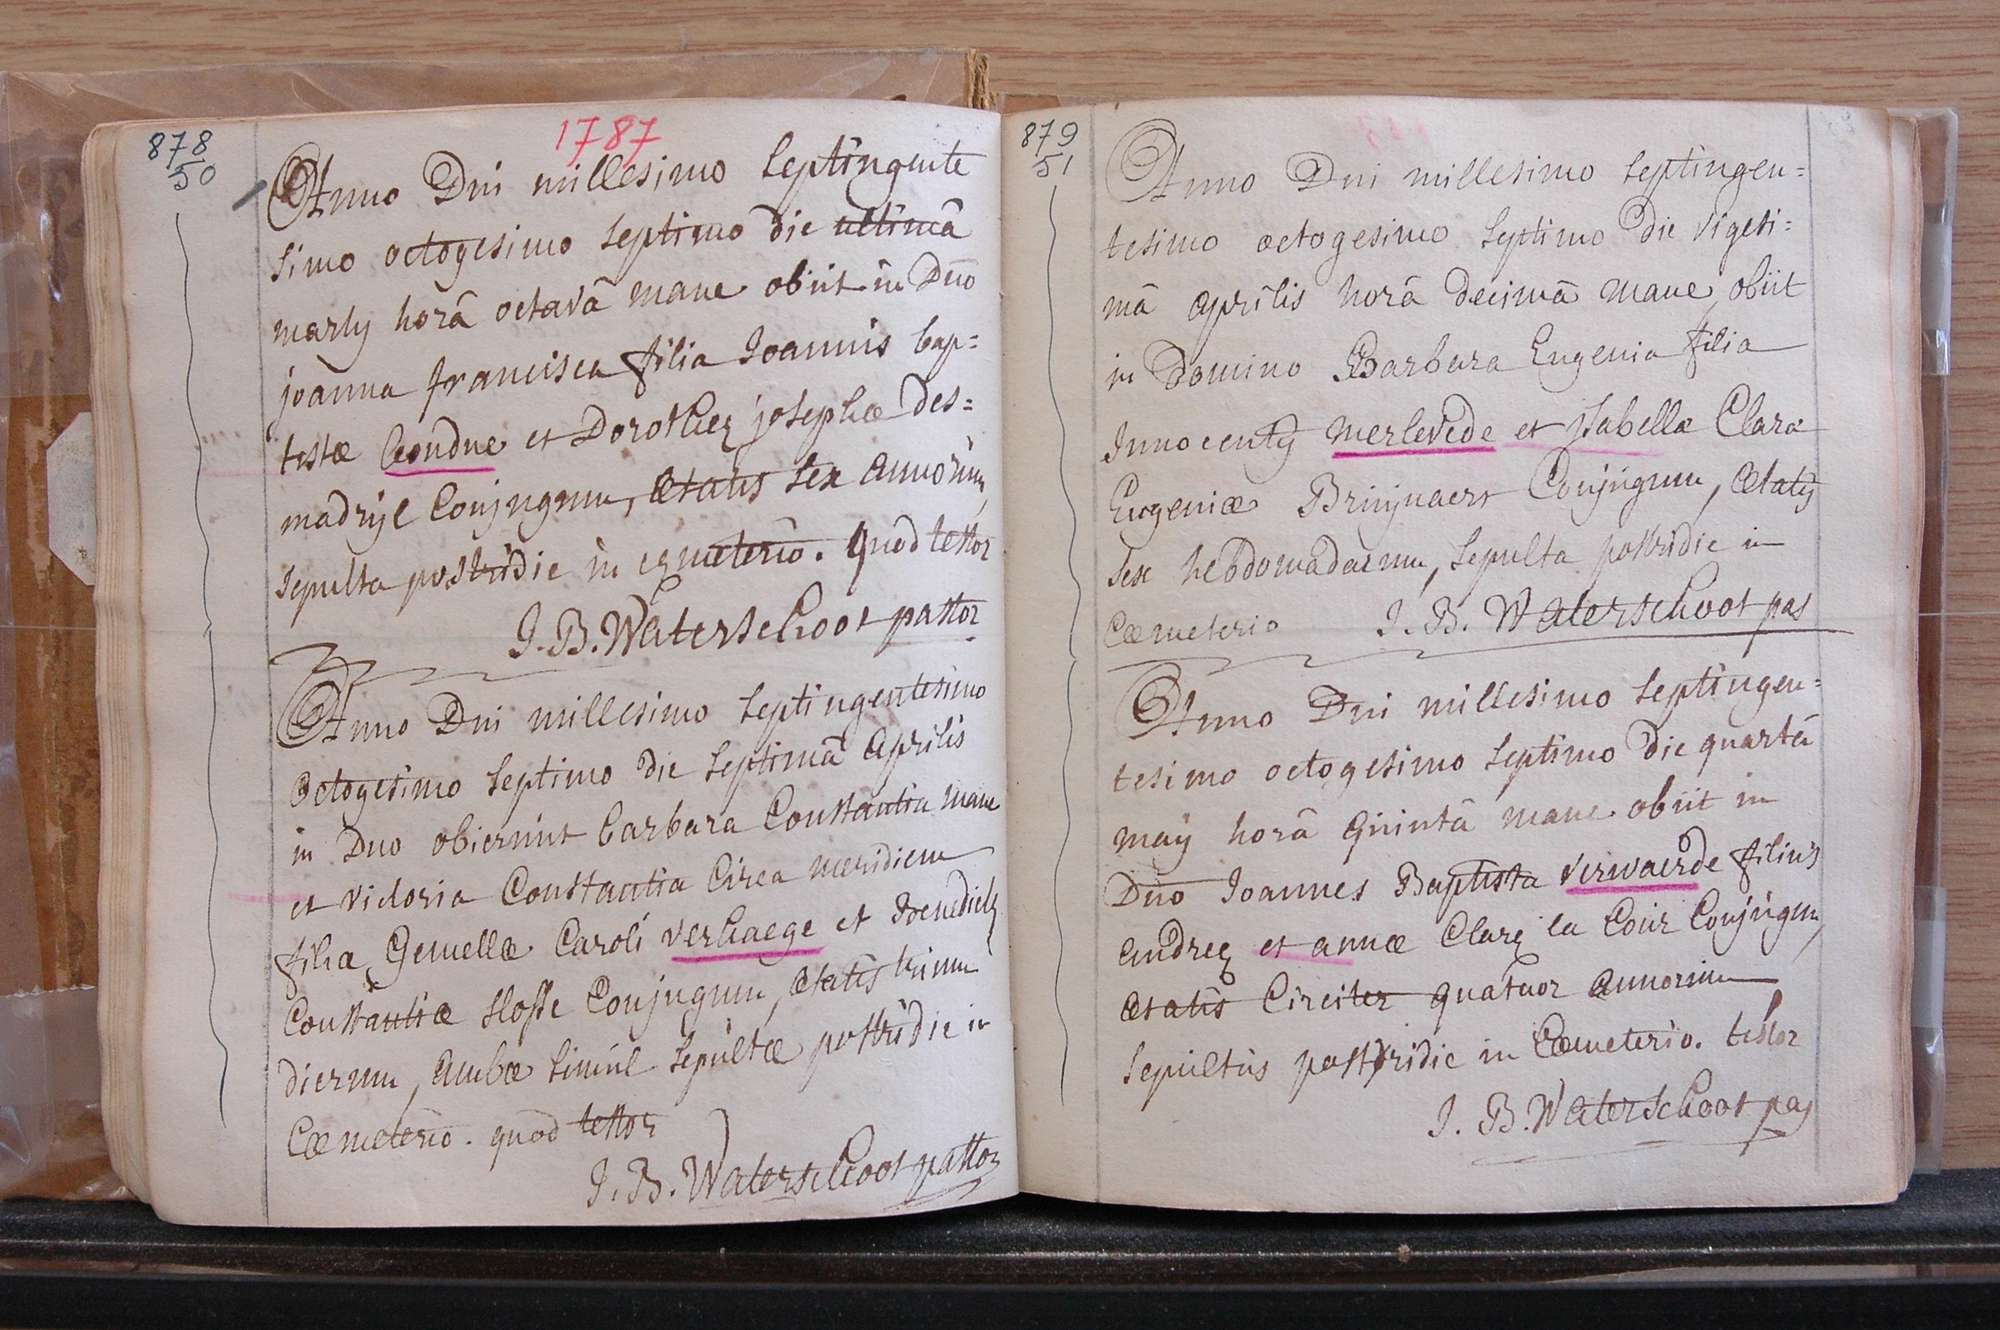 878
50
1787
Anno Dni millesimo septingente
simo octogesimo septimo die ultimâ
martij horâ octavâ mane obiit in Dno
joanna francisca filia Joannis bap=
tistæ Coudue et Dorotheę josephæ des=
madryl Conjugum, ætatis sex annorum,
sepulta postridie in cęmeterio. quod testor
J. B. Waterschoot pastor
Anno Dni millesimo septingentesimo
octogesimo septimo die septimâ aprilis
in Dno obierunt barbara Constantia mane
et victoria Constantia circa meridiem
filiæ Gemellæ Caroli verhaege et
Constantiæ Conjugum, ætatis trium
dierum, ambæ simul sepultæ postridie in
Cæmeterio. quod testor
J. B. Waterschoot pastor
879
51
Anno Dni millesimo septingen=
tesimo octogesimo septimo die vigesi=
mâ aprilis horâ decimâ mane obiit
in Domino Barbara Eugenia filia
Innocentij merlevede et jsabellæ Claræ
Eugeniæ Brinjnaert Conjugum, ætatis
sex hebdomadarum, sepulta postridie in
Cæmeterio J. B. Waterschoot pas
Anno Dni millesimo septingen=
tesimo octogesimo septimo die quartâ
maij horâ quintâ mane obiit in
Dno Joannes Baptista verwaerde filius
andreę et annæ Clarę la Cour Conjugum,
ætatis circiter quatuor annorum
sepultus postridie in Cæmeterio. testor
J. B. Waterschoot pas